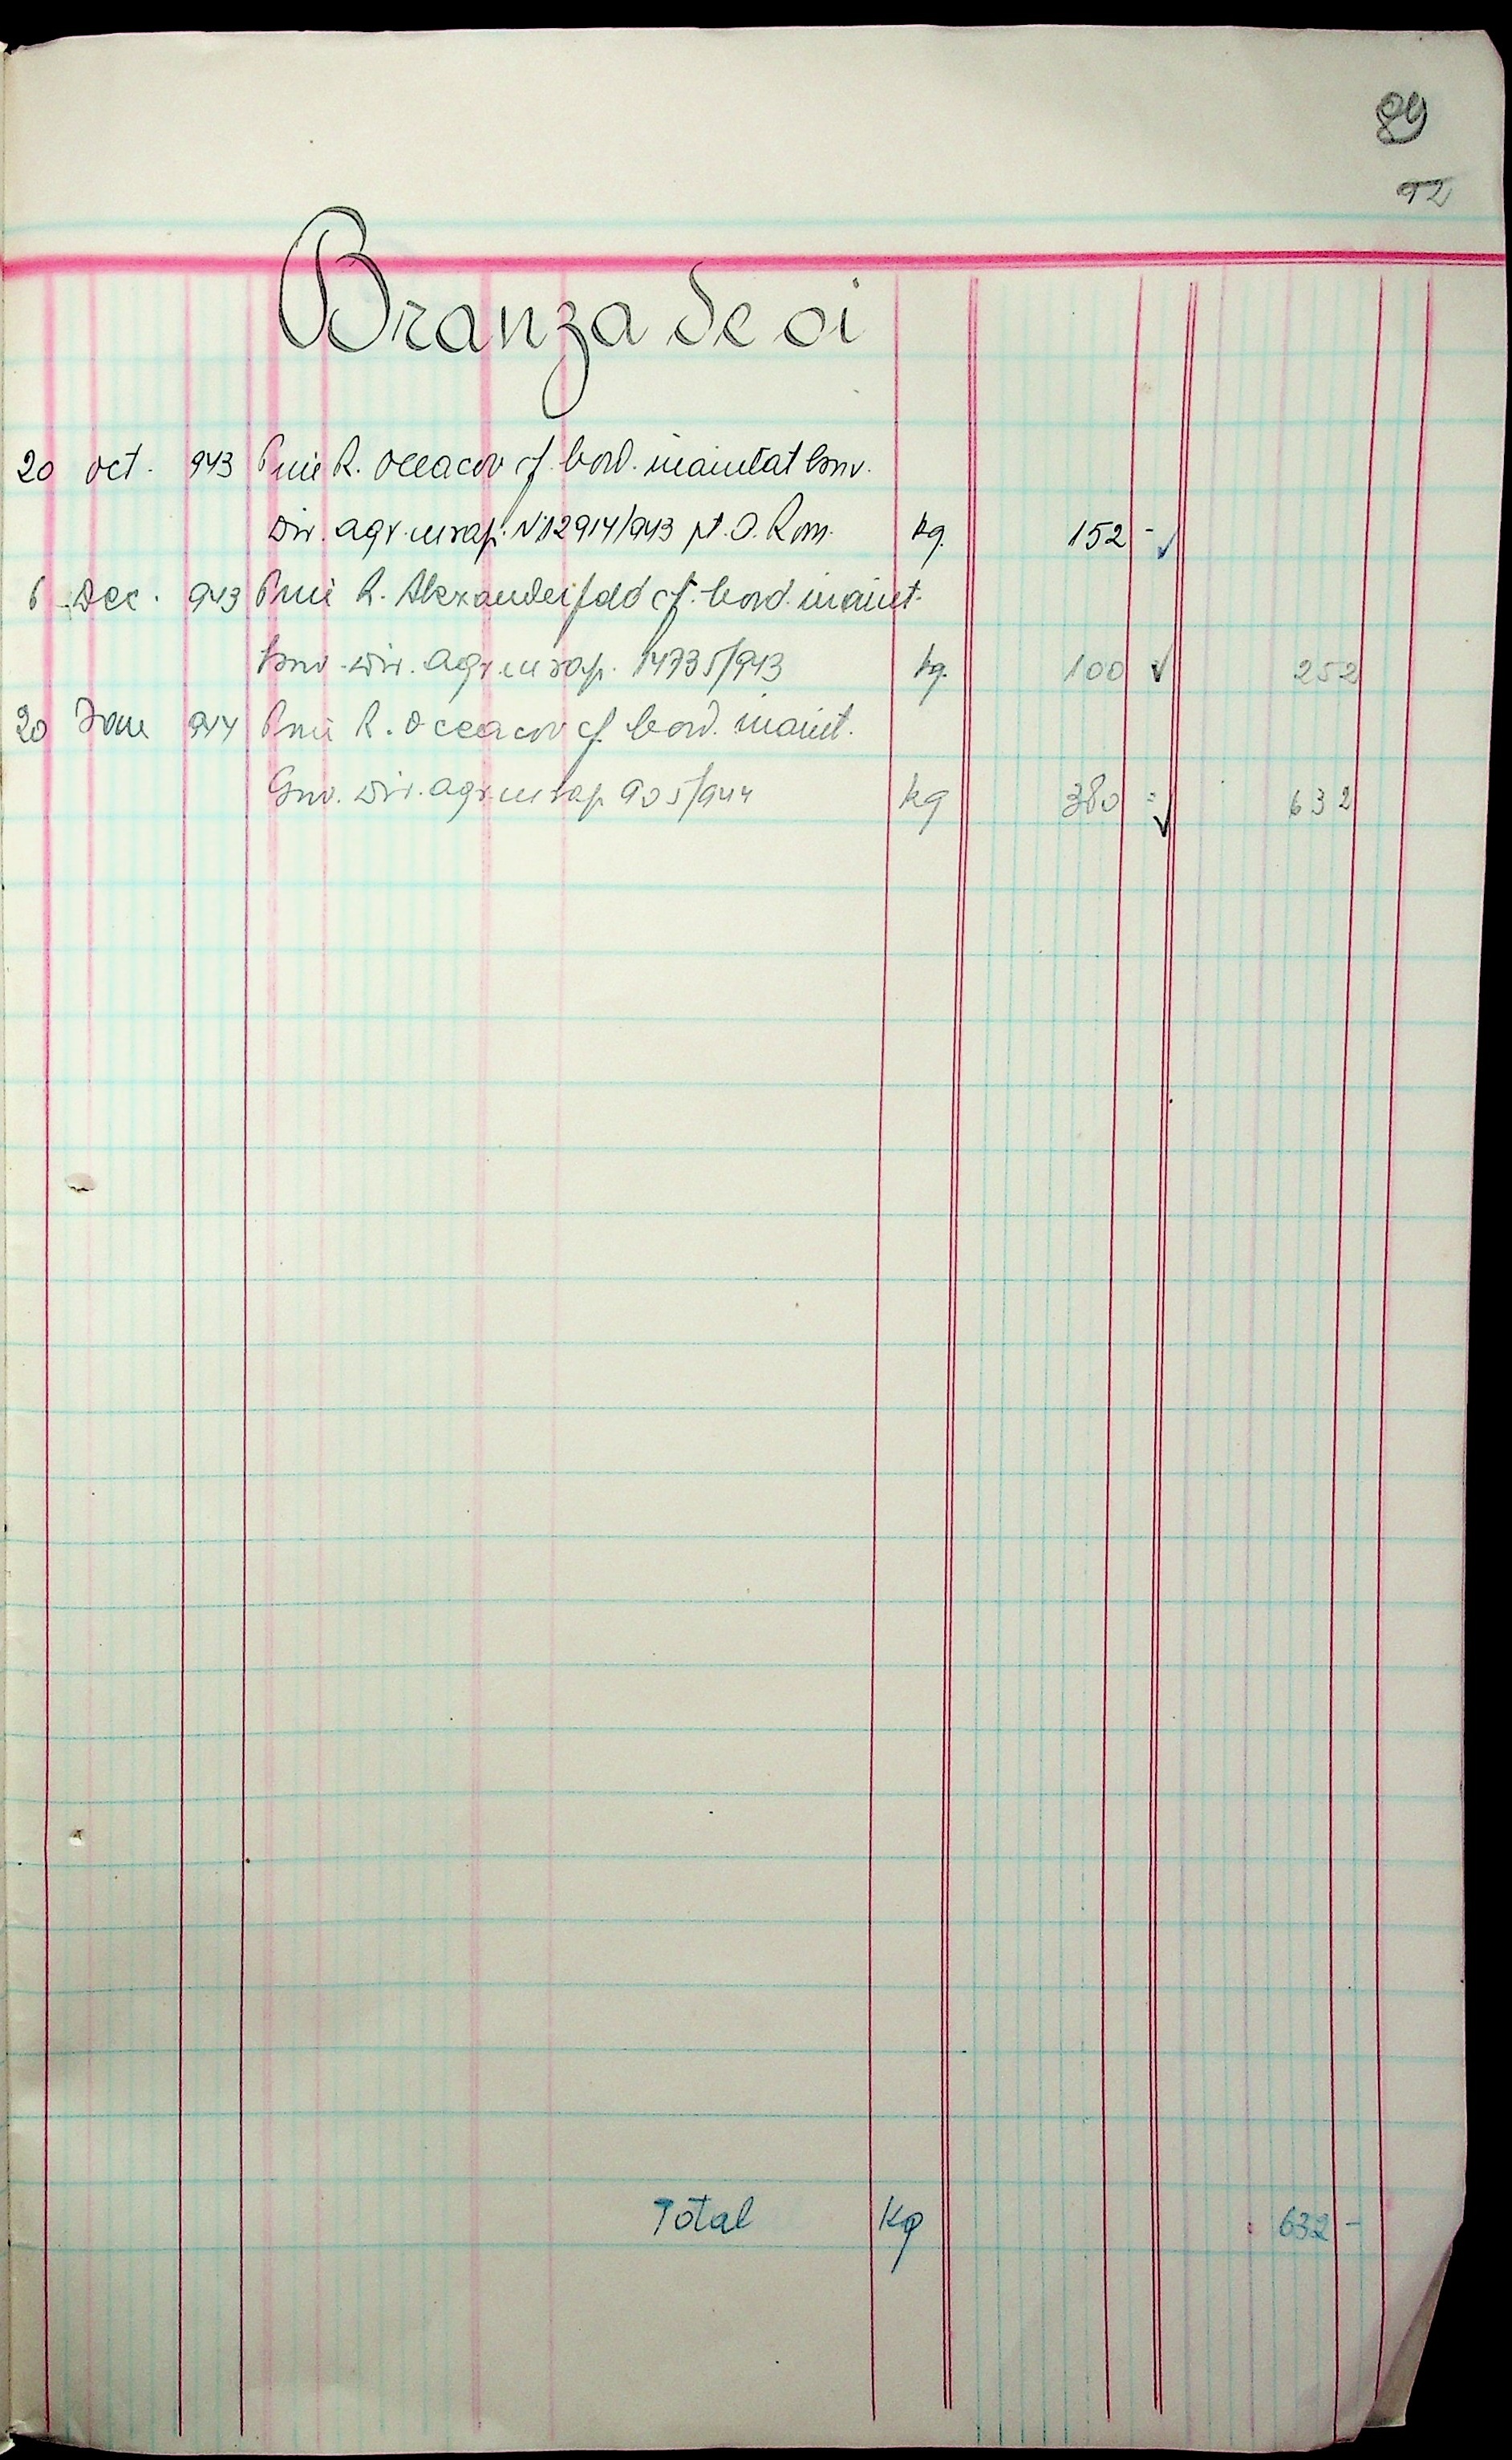 89
92
Branza de oi
20 oct. 943 Prin R. Oceacov cf. bord. inaintat Guv.
Dir. agr. cu rap. N 12914/943 pt. O. Rom. kg. 152 -
6 Dec. 943 Prin R. Alexanderfeld cf. bord. inaint.
Guv. Dir. agr. cu rap. 14735/943 kg. 100 252
20 Ian 944 Prin R. Oceacov cf. bord. inaint.
Guv. Dir. agr. cu rap. 905/944 kg 380 632
Total Kg 632 -